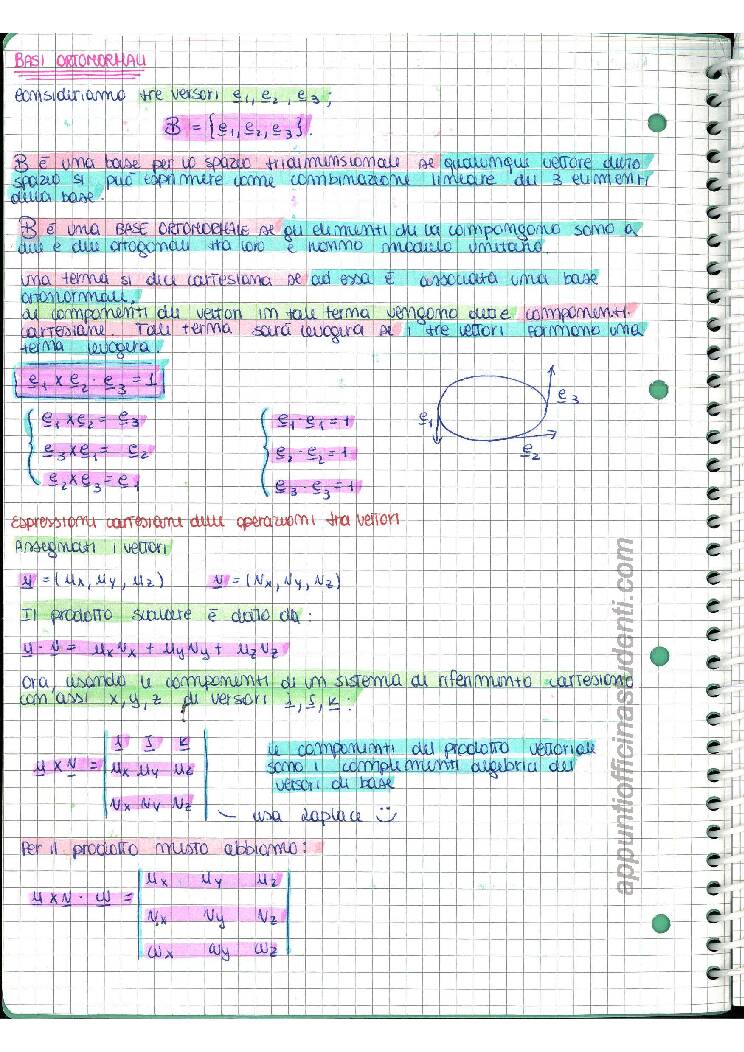 BASI ORTONORMALI
Consideriamo tre versori e₁, e₂, e₃;
B = {e₁, e₂, e₃}.
B è una base per lo spazio tridimensionale se qualunque vettore dello
spazio si può esprimere come combinazione lineare dei 3 elementi
della base.
B è una BASE ORTONORMALE se gli elementi che la compongono sono a
due e due ortogonali tra loro e hanno modulo unitario.
una terna si dice cartesiana se ad essa è associata una base
ortonormale.
Le componenti dei vettori in tale terna vengono dette componenti
cartesiane. Tale terna sarà levogira se i tre vettori formano una
terna levogira.
e₁ × e₂ · e₃ = 1
e₁ × e₂ = e₃
e₃ × e₁ = e₂
e₂ × e₃ = e₁
e₁ · e₁ = 1
e₂ · e₂ = 1
e₃ · e₃ = 1
e₁
e₂
e₃
Espressioni cartesiane delle operazioni tra vettori
Assegnati i vettori
u = (ux, uy, uz) v = (vx, vy, vz)
Il prodotto scalare è dato da:
u · v = uxvx + uyvy + uzvz
Ora, usando le componenti di un sistema di riferimento cartesiano
con assi x, y, z di versori i, j, k:
u × v =
i j k
ux uy uz
vx vy vz
le componenti del prodotto vettoriale
sono i complementi algebrici dei
versori di base
usa Laplace :)
Per il prodotto misto abbiamo:
u × v · w =
ux uy uz
vx vy vz
wx wy wz
appuntiofficinastudenti.com